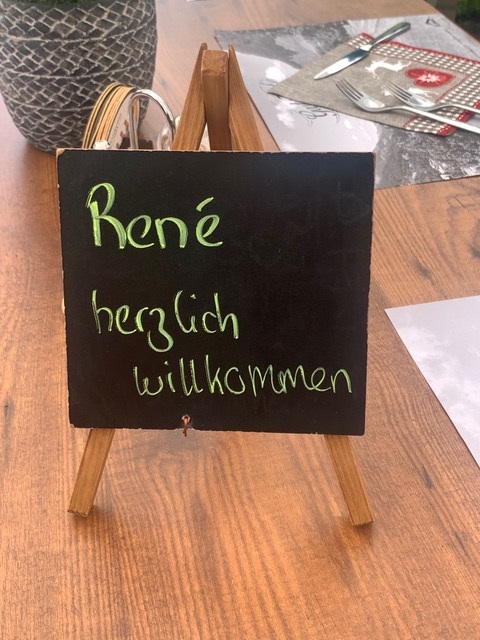 René
herzlich
willkommen